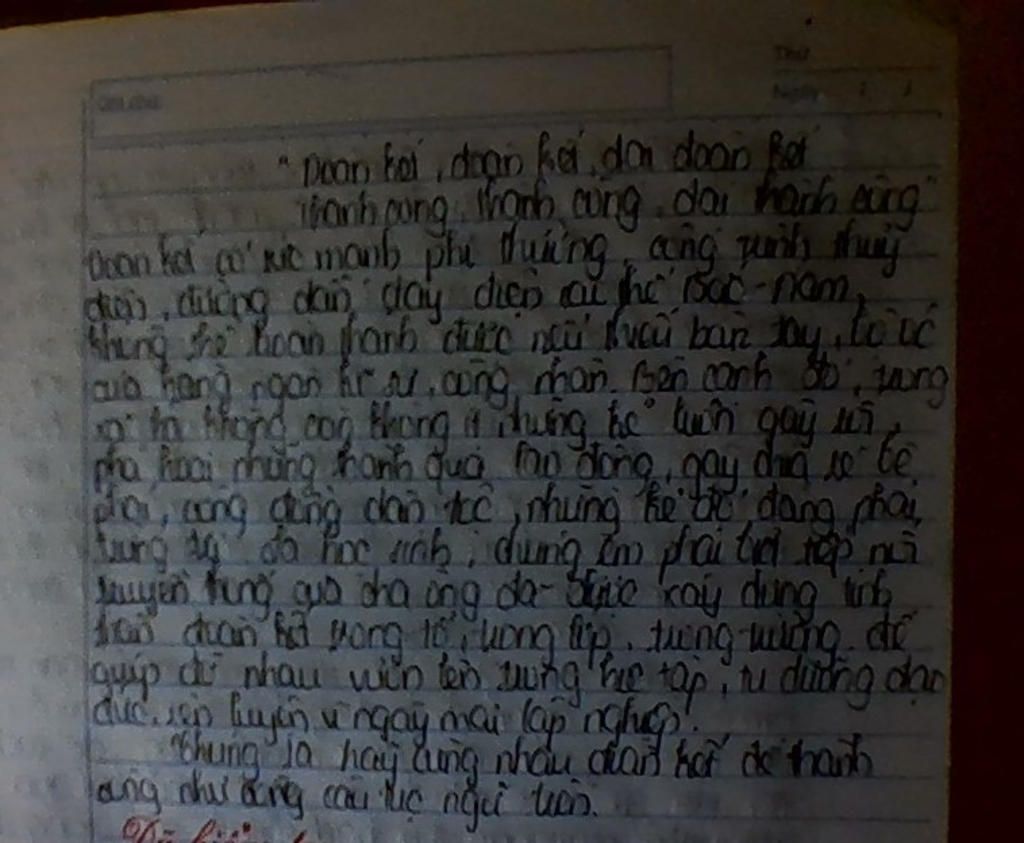 Thứ
Ngày / /
"Đoàn kết, đoàn kết, đại đoàn kết
Thành công, thành công, đại thành công"
Đoàn kết có sức mạnh phi thường, công trình thuỷ
điện, đường dây điện Bắc-nam,
không thể hoàn thành được nếu thiếu bàn tay,
của hàng ngàn kĩ sư, công nhân. Bên cạnh đó, trong
xã ta không ít những kẻ luôn gây rối,
phá hoại những thành quả lao động, gây chia rẽ bè
phái, cộng đồng dân tộc, những kẻ đó đáng phải
trừng trị. là học sinh, chúng em phải tiếp nối
truyền thống cha ông đã xây dựng tinh
thần đoàn kết trong tổ, trong lớp, trong trường. để
giúp đỡ nhau vươn lên trong học tập, tu dưỡng đạo
đức, rèn luyện vì ngày mai lập nghiệp.
Chúng ta hãy cùng nhau đoàn kết để thành
công như câu tục ngữ trên.